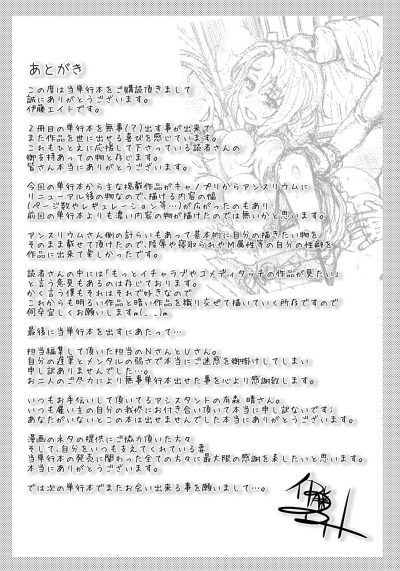 あとがき
この度は当単行本をご購読頂きまして
誠にありがとうございます。
伊藤エイトです。
2冊目の単行本を無事(?)出す事が出来て
また作品を世に出せる喜びを感じています。
これもひとえに応援して下さっている読者さんの
御支持あっての物と存じます。
皆さん本当にありがとうございます。
今回の単行本から主な掲載作品がキャノプリからアンスリウムに
リニューアル後の物なので、描ける内容の幅
(ページ数やレギュレーション等…)が広がったのもあり
前回の単行本よりも濃い内容の物が描けたのでは無いかと思います。
アンスリウムさん側の計らいもあって基本的に自分の描きたい物を
そのまま載せて頂けたので、陵辱や寝取られやM属性等の自分の性癖を
作品に出来て楽しかったです。
読者さんの中には「もっとイチャラブやコメディタッチの作品が見たい」
と言う意見もあるのは存じております。
かく言う僕もそれはそれで好きなので
これからも明るい作品と暗い作品を織り交ぜて描いていく所存ですので
何卒宜しくお願いしますm(_ _)m
最後に当単行本を出すにあたって…
担当編集して頂いた担当のNさんとUさん。
自分の遅筆とメンタルの弱さで本当にご迷惑を御掛けしてしまい
申し訳ありませんでした…。
お二人のご尽力により無事単行本出せた事を心より感謝致します。
いつもお手伝いして頂いてるアシスタントの有森 晴さん。
いつも雇い主の自分の我儘にお付き合い頂いて本当に申し訳ないです;
あなたがいないとこの本は出せませんでした。本当にありがとうございます。
漫画のネタの提供にご協力頂いた方々
そして、自分をいつも支えてくれている妻
当単行本の発売に関わった全ての方々に最大限の感謝を表したいと思います。
本当にありがとうございます。
では次の単行本でまたお会い出来る事を願いまして…。